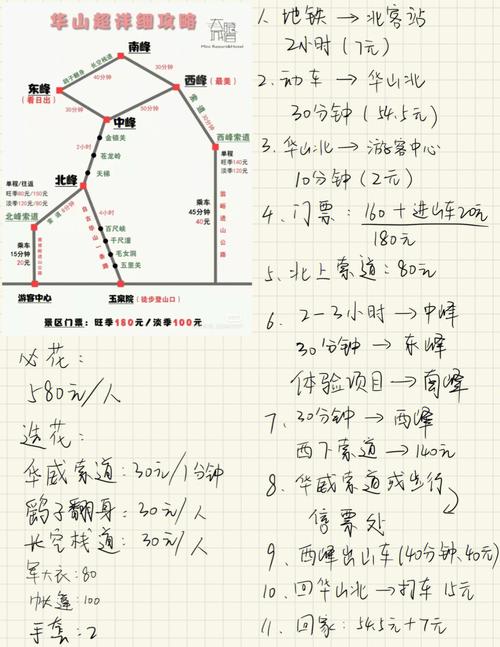 华山超详细攻略
Mini Resort&Hotel
南峰
鹞子翻身
长空栈道
30分钟
30分钟
东峰
(看日出)
西峰
(最美)
30分钟
50分钟
中峰
索道
30分钟
金锁关
2小时
苍龙岭
天梯
西峰索道
单程
旺季140元
淡季120元
北峰
单程/往返
旺季80元/150元
淡季120元/80元
北峰索道
索道
8分钟
4小时
自古华山一条路
百尺峡
千尺潼
毛女洞
五里关
乘车
45分钟
40元
瓮峪进山公路
乘车
15分钟
20元
游客中心
玉泉院
(徒步登山口)
景区门票:旺季180元/淡季100元
必花:
580元/人
选花:
华威索道:30元/1分钟
鹞子翻身:30元/人
长空栈道:30元/人
军大衣:80
帐篷:100
手套:2
1、地铁→北客站
2小时(7元)
2.动车→华山北
30分钟(54.5元)
3、华山北→游客中心
10分钟(2元)
4、门票:160+进山车20元
180元
5、北上索道:80元
6、2-3小时→中峰
30分钟→东峰
体验项目→南峰
7、30分钟→西峰
西下索道→140元
8、华威索道或步行
售票处
9、西峰出山车(40分钟、40元)
10、回华山北→打车15元
11、回家:54.5元+7元